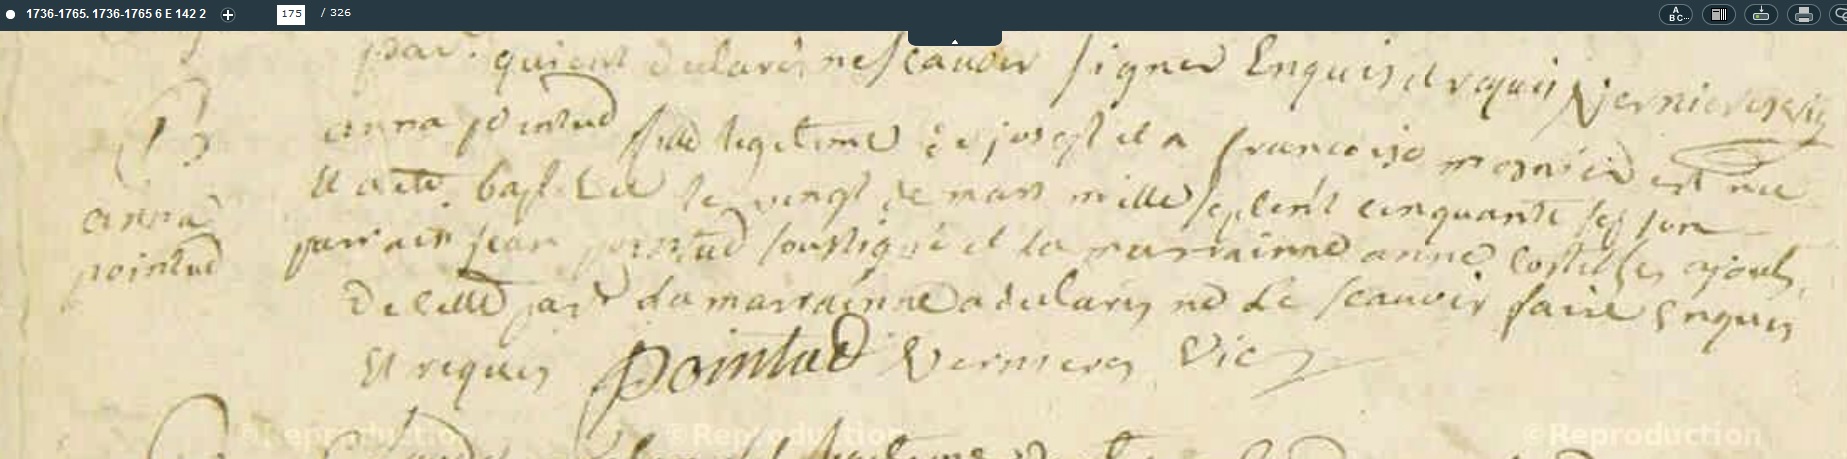 1736-1765. 1736-1765 6 E 142 2 175 / 326
par. qui ont declarés ne scavoir signer Enquis et requis Vernieres vic
B
anna pointud fille legitime de joseph et a francoise est nee
anna
pointud
Et a été baptisée le vingt de mars mille sept cent cinquante six son
parrain jean pointud soussigné et la marrainne anne de
de celle part la marrainne a declarés ne le scavoir faire Enquis
Et requis pointud Vernieres Vic
©Reproduction ©Reproduction ©Reproduction